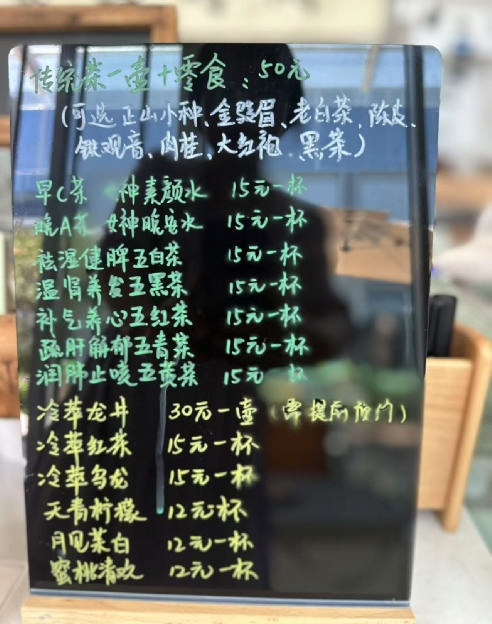 传统茶一壶+零食：50元
（可选正山小种、金骏眉、老白茶、陈皮、
铁观音、肉桂、大红袍、黑茶）
早C茶 女神素颜水 15元一杯
晚A茶 女神晚安水 15元一杯
祛湿健脾五白茶 15元一杯
温肾养发五黑茶 15元一杯
补气养心五红茶 15元一杯
疏肝解郁五青茶 15元一杯
润肺止咳五黄茶 15元一杯
冷萃龙井 30元一壶（需提前预约）
冷萃红茶 15元一杯
冷萃乌龙 15元一杯
天青柠檬 12元一杯
月见茶白 12元一杯
蜜桃清欢 12元一杯